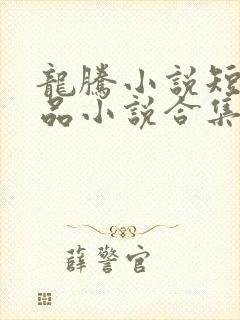 龍騰小説短
品小説合集
薛警官